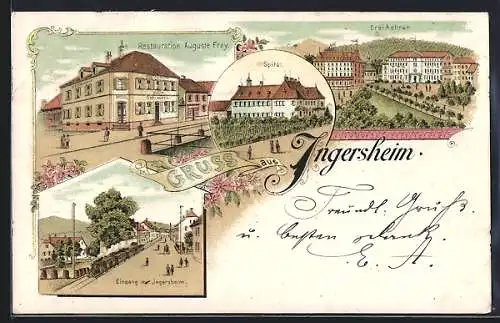 Restauration Auguste Frey.
Drei-Aehren
Spital.
GRUSS aus Ingersheim.
Eingang in Ingersheim.
Freundl. Gruss
u. besten
E. A.